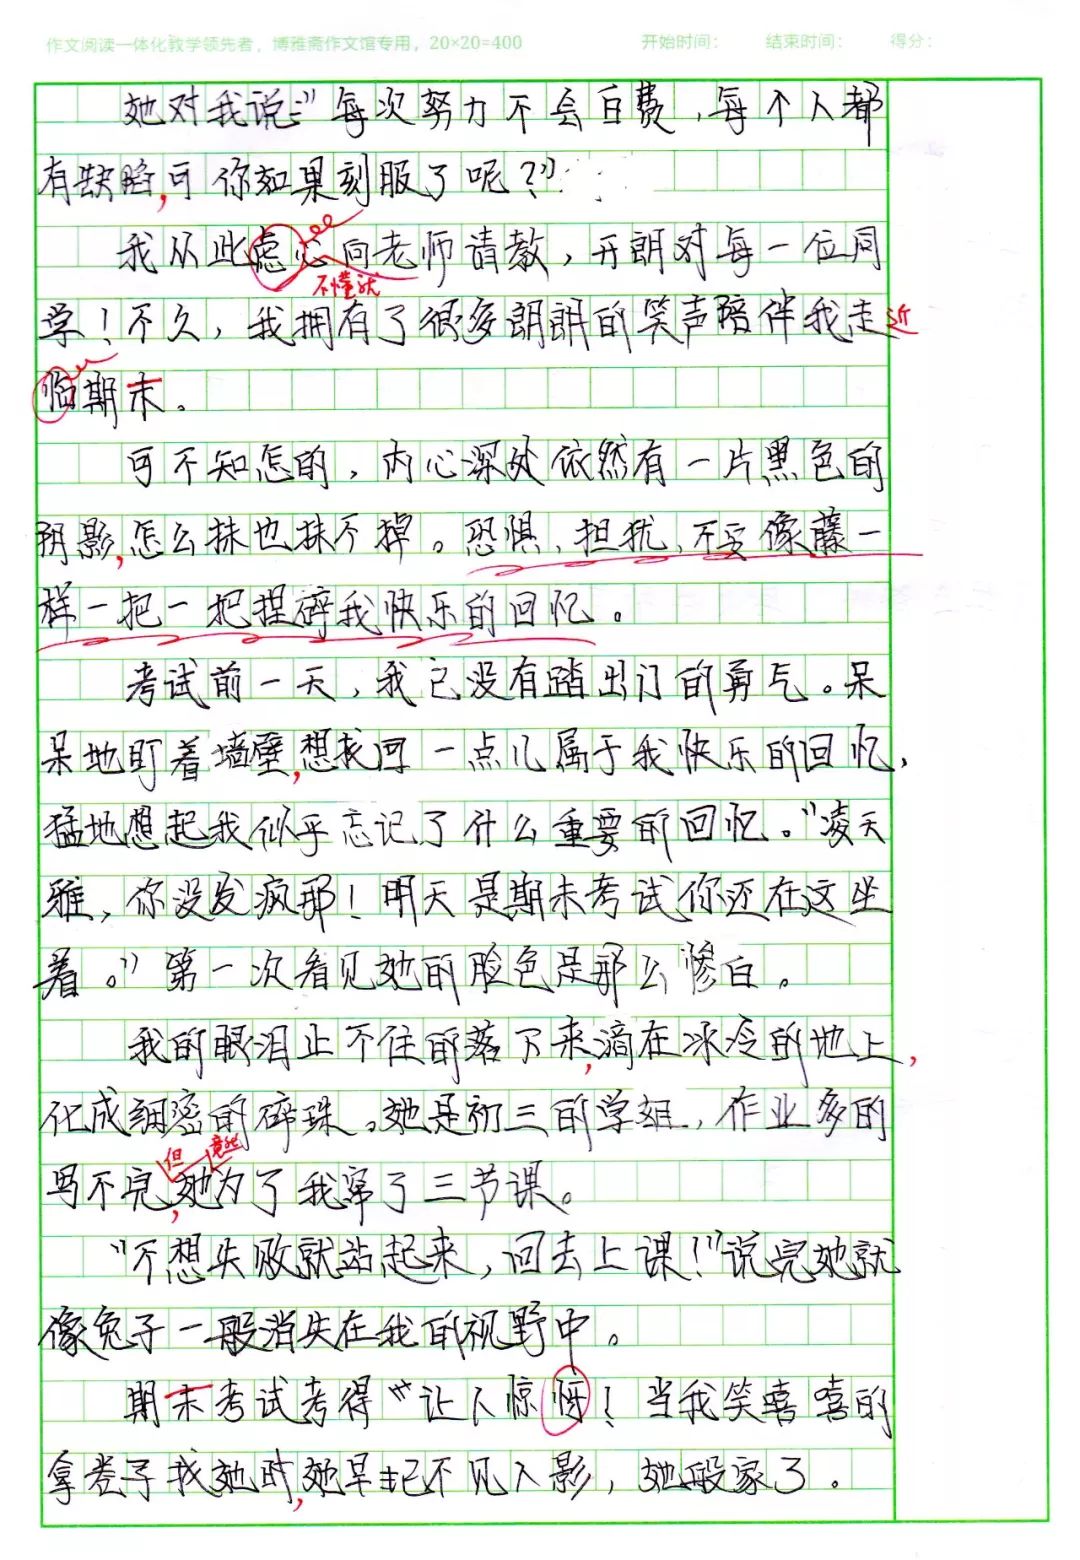 作文阅读一体化教学领先者，博雅斋作文馆专用，20×20=400 开始时间： 结束时间： 得分：
她对我说：“每次努力不会白费，每个人都
有缺陷，可你如果刻服了呢？”
我从此虚心向老师请教，开朗对每一位同
不懂就
学！不久，我拥有了很多朗朗的笑声陪伴我走近
临期末。
可不知怎的，内心深处依然有一片黑色的
阴影，怎么抹也抹不掉。恐惧，担犹，不安像藤一
样一把一把捏碎我快乐的回忆。
考试前一天，我已没有踏出门的勇气。呆
呆地盯着墙壁，想找回一点儿属于我快乐的回忆，
猛地想起我似乎忘记了什么重要的回忆。“凌天
雅，你没发疯那！明天是期末考试你还在这坐
着。”第一次看见她的脸色是那么惨白。
我的眼泪止不住的落下来，滴在冰冷的地上，
化成细密的碎珠。她是初三的学姐，作业多的
但 竟然
写不完，她为了我窜了三节课。
“不想失败就站起来，回去上课！”说完她就
像兔子一般消失在我的视野中。
期末考试考得 让人惊讶！当我笑嘻嘻的
拿卷子找她时，她早已不见人影，她般家了。